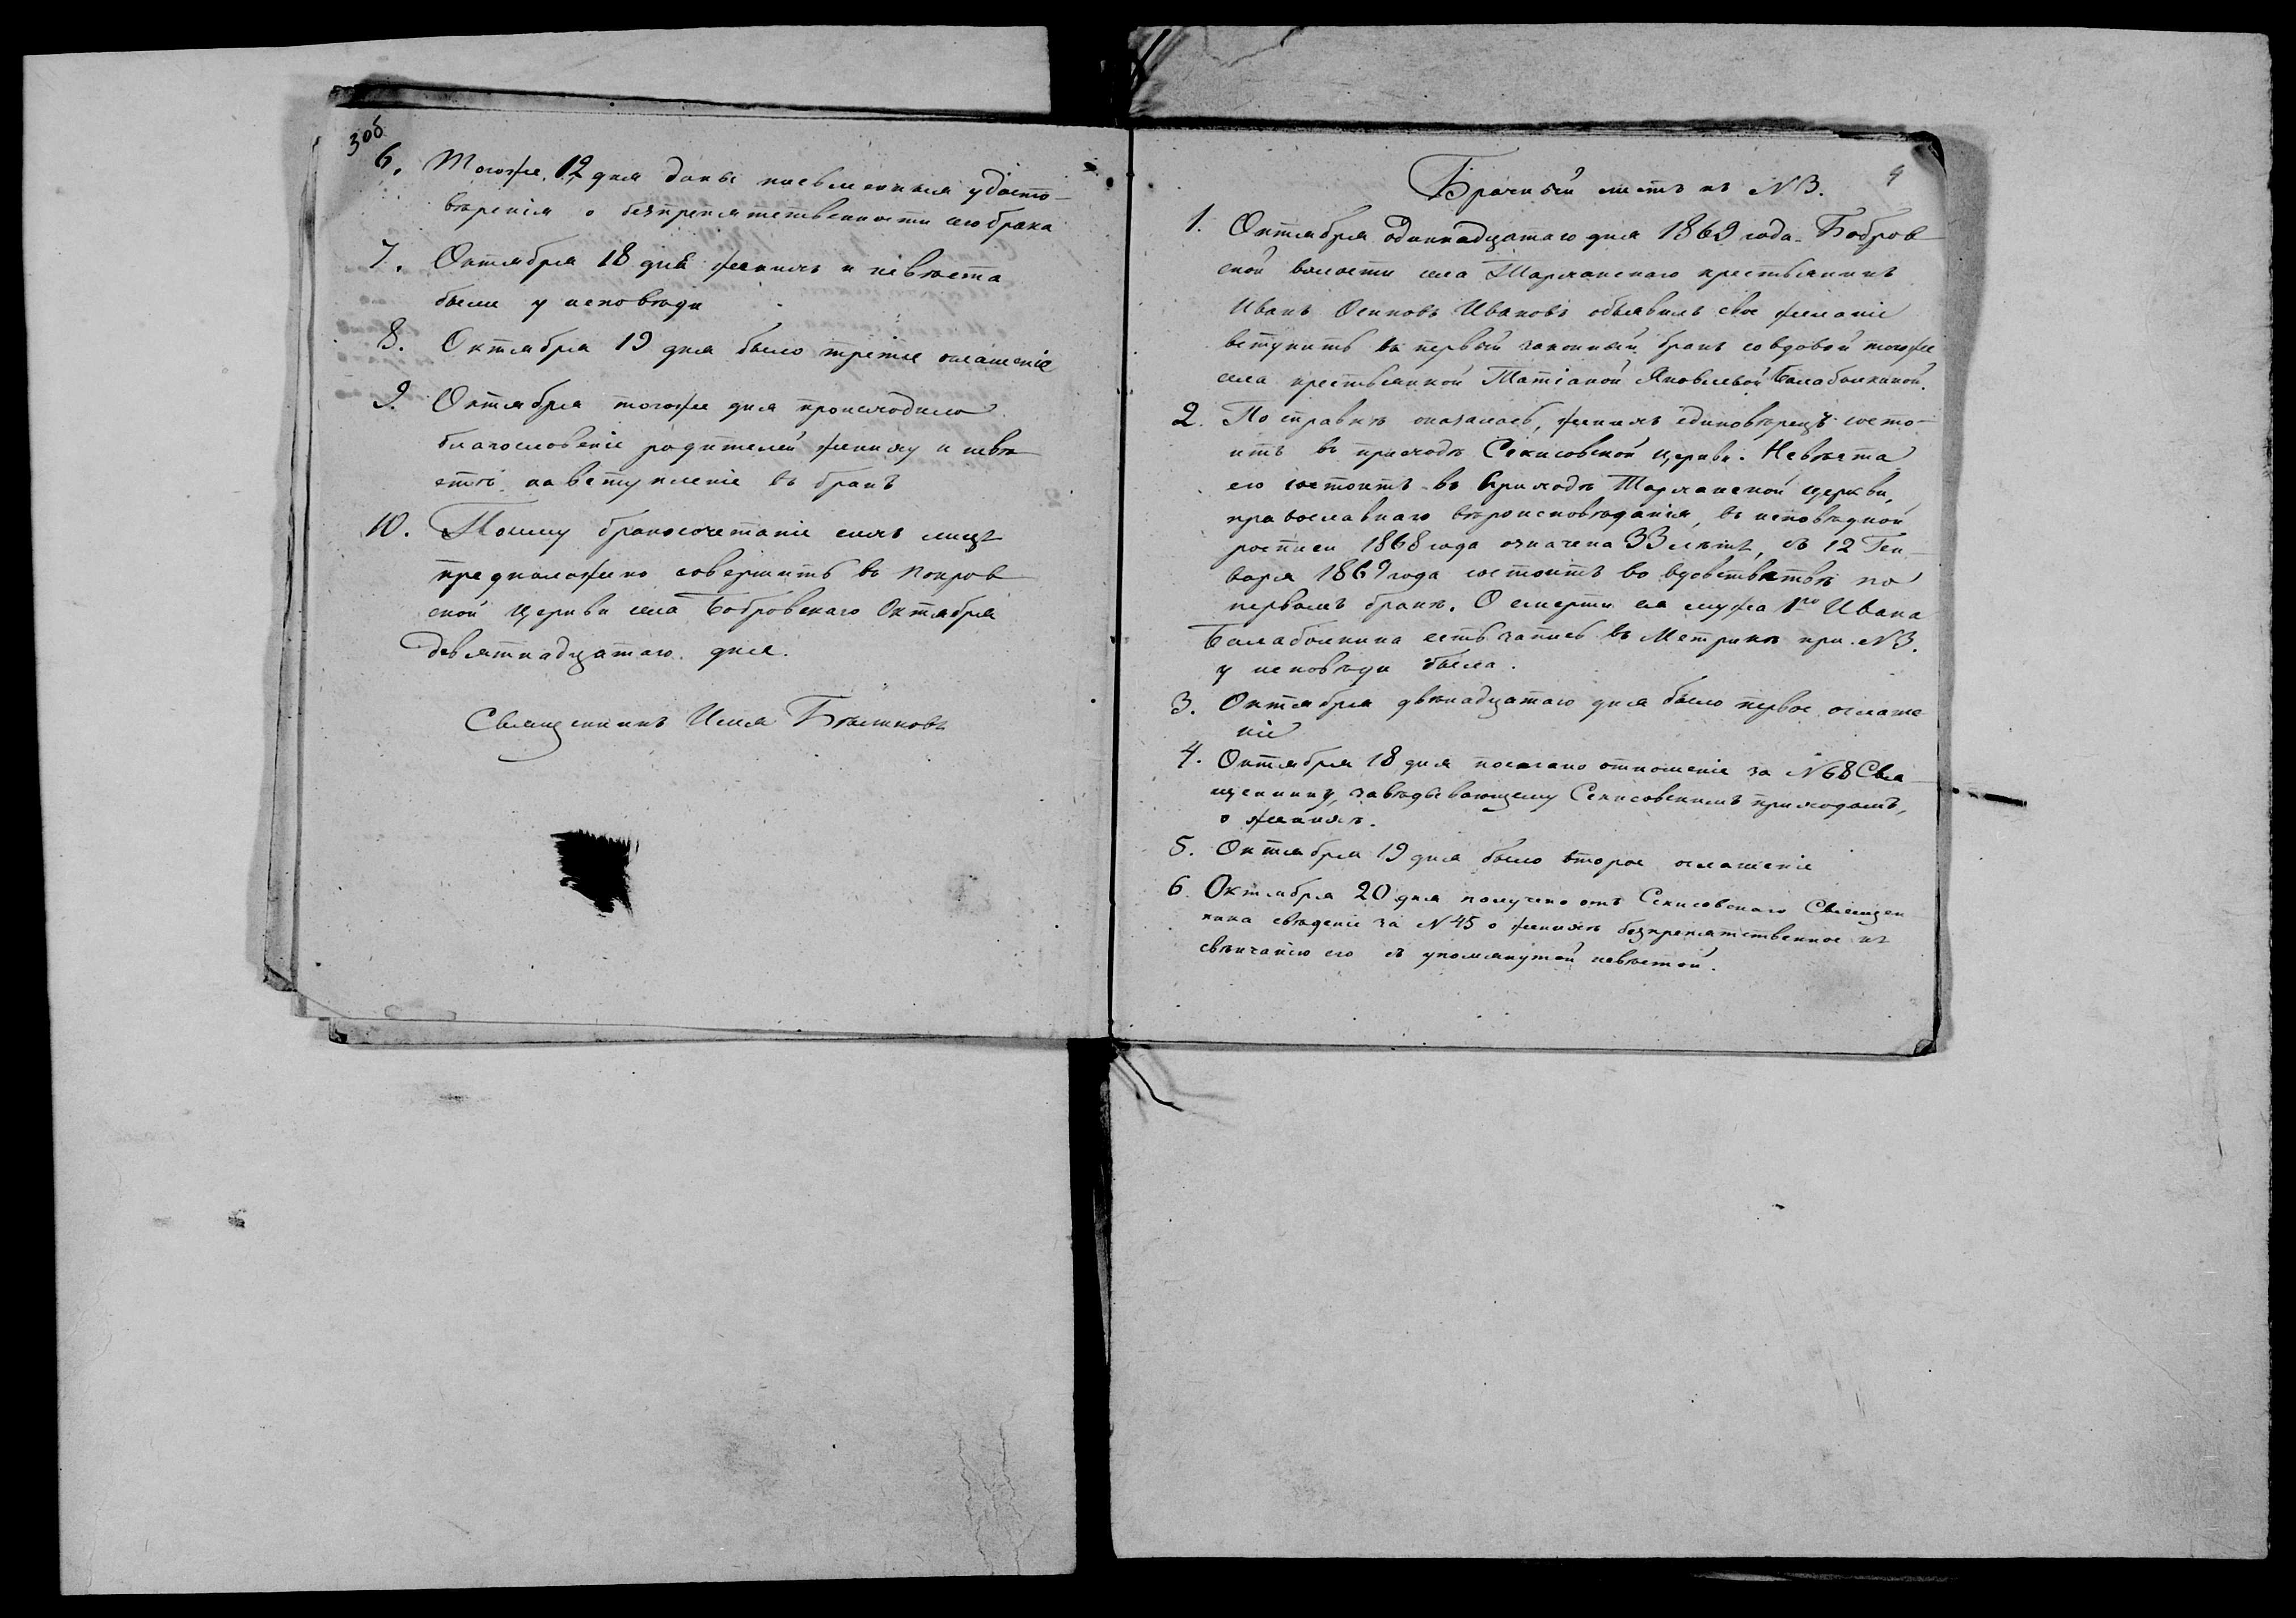 3об
6. Тогоже 12 дня даны письменныя удосто-
вѣрения о безпрепятственности сего брака
7. Октября 18 дня женихъ и невѣста
были у исповѣди
8. Октября 19 дня было третье оглашеніе
9. Октября тогоже дня происходило
благословеніе родителей жениху и невѣ-
стѣ на вступленіе въ бракъ
10. Посему бракосочетаніе сихъ лицъ
предположено совершить въ Покров-
ской церкви села Бобровскаго Октября
девятнадцатаго дня.
Священникъ Илья
4
Брачный листъ къ N 3.
1. Октября одиннадцатаго дня 1869 года. Бобров-
ской волости села Тарханскаго крестьянинъ
Иванъ Осиповъ Ивановъ объявилъ свое желаніе
вступить въ первый законный бракъ со вдовой тогоже
села крестьянкой Татіаной Яковлевой Балаболкиной.
2. По справкѣ оказалось, женихъ единовѣрецъ состо-
итъ въ приходѣ Секисовской церкви. Невѣста
его состоитъ въ приходѣ Тарханской церкви,
православнаго вѣроисповѣданія, въ исповѣдной
росписи 1868 года означена 33 лѣтъ, съ 12 Ген-
варя 1869 года состоитъ во вдовствѣ по
первомъ бракѣ. О смерти ея мужа 1го Ивана
Балаболкина есть запись въ Метрикѣ при N 3.
у исповѣди была.
3. Октября двѣнадцатаго дня было первое оглаше
ніе
4. Октября 18 дня послано отношеніе за N 68 Свя-
щеннику, завѣдывающему Секисовскимъ приходомъ,
о женихѣ.
5. Октября 19 дня было второе оглашеніе
6. Октября 20 дня получено отъ Секисовскаго Священ
ника свѣденіе за N 45 о женихѣ безпрепятственное къ
свѣнчанію его съ упомянутой невѣстой.